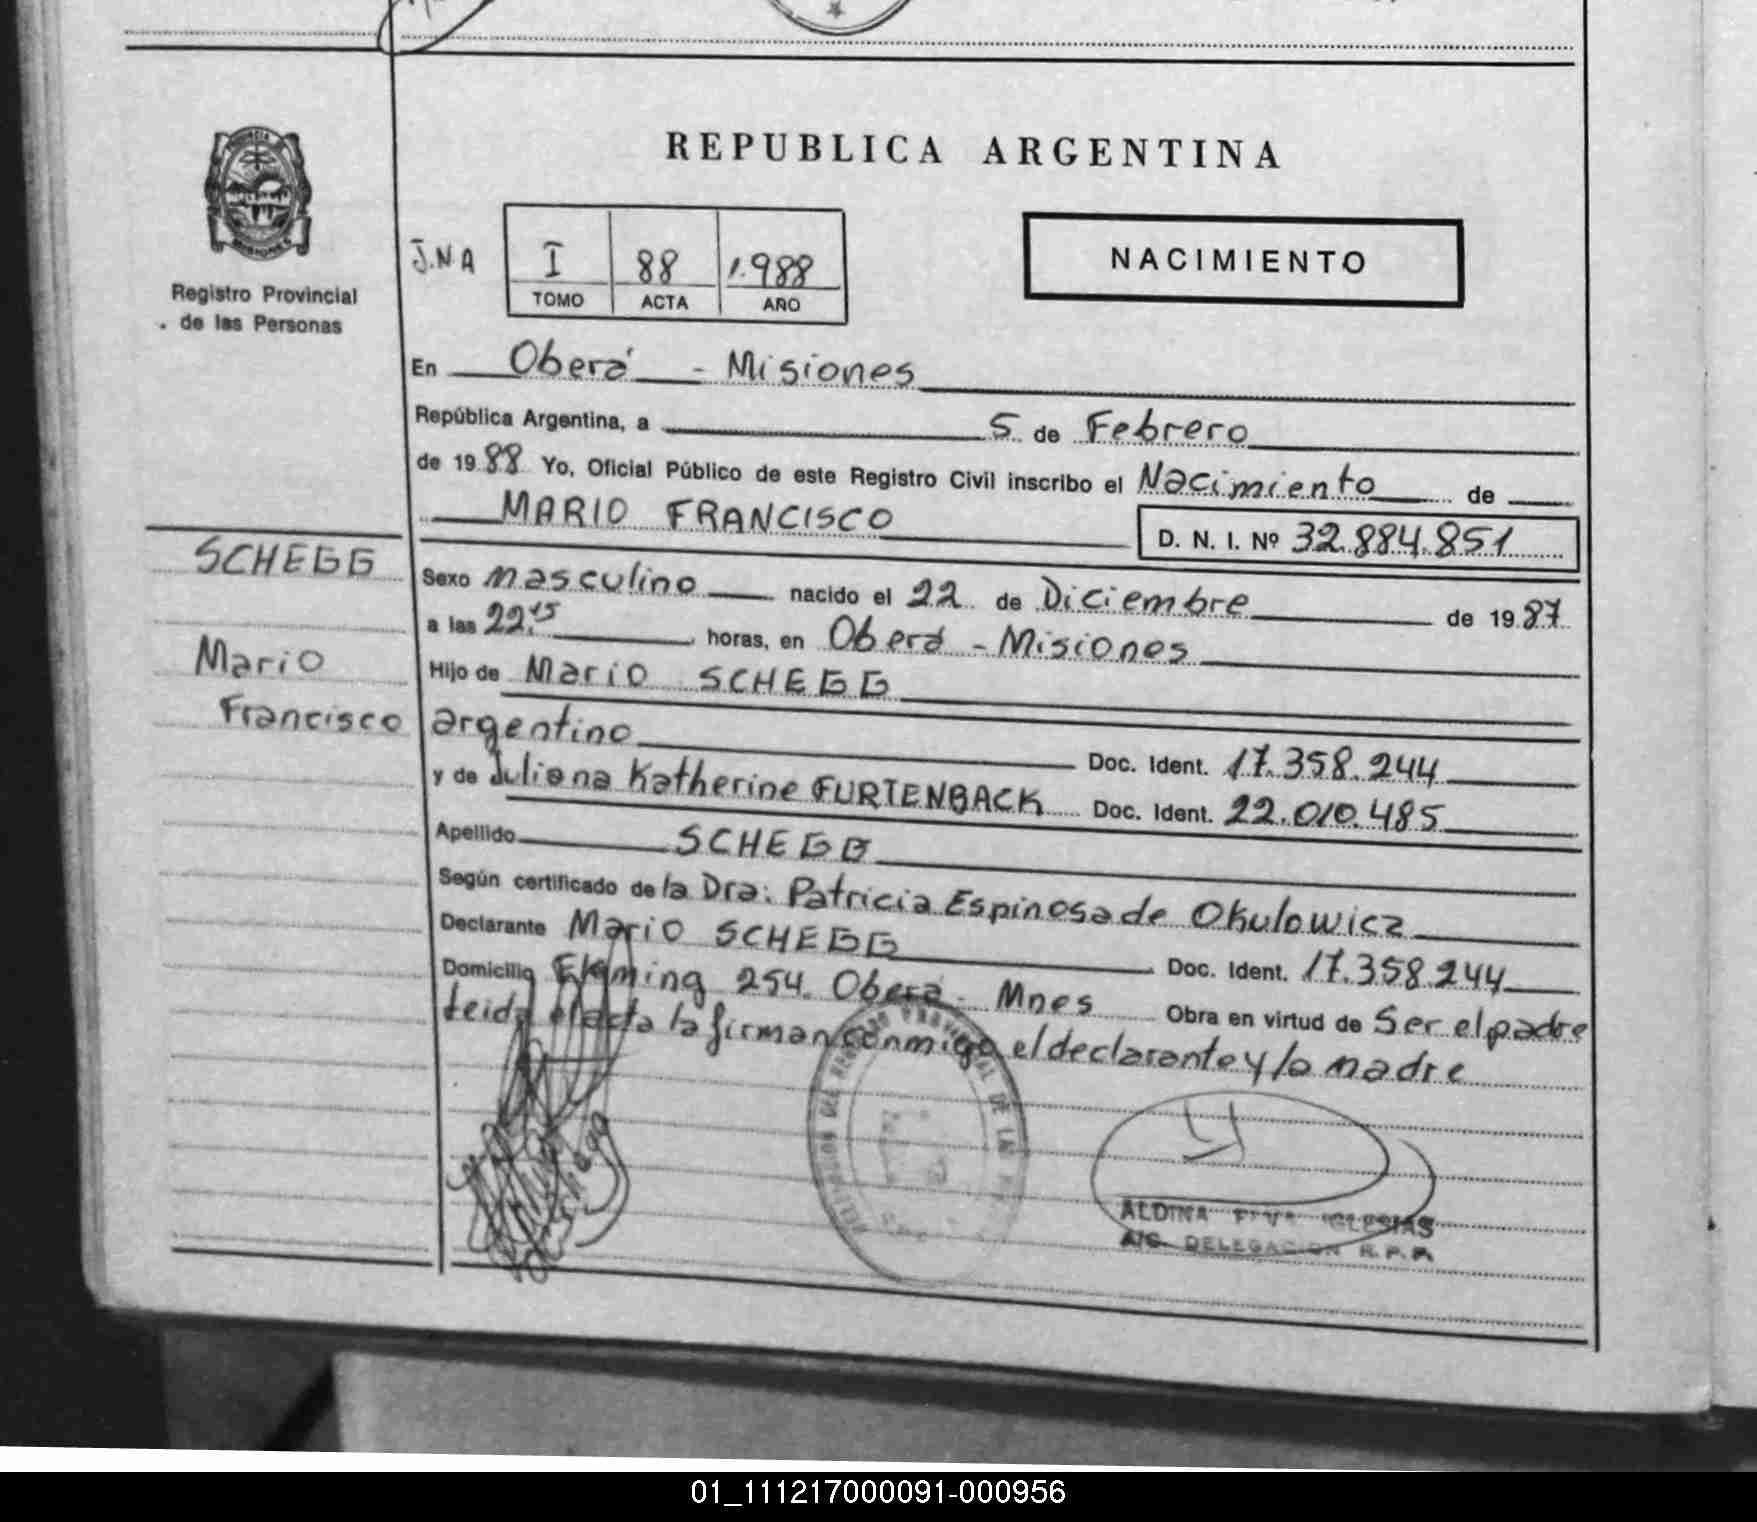 REPUBLICA ARGENTINA
Registro Provincial
de las Personas
J.N.A
I 88 1.988
TOMO ACTA AÑO
NACIMIENTO
En Oberá - Misiones
República Argentina, a 5 de Febrero
de 1988 Yo, Oficial Público de este Registro Civil inscribo el Nacimiento de
MARIO FRANCISCO
D. N. I. Nº 32.884.851
SCHEGG
Mario
Francisco
Sexo masculino nacido el 22 de Diciembre de 1987
a las 22:15 horas, en Oberá - Misiones
Hijo de Mario SCHEGG
argentino Doc. Ident. 17.358.244
y de Juliana Katherine FURTENBACK Doc. Ident. 22.010.485
Apellido SCHEGG
Según certificado de la Dra: Patricia Espinosa de Okulowicz
Declarante Mario SCHEGG Doc. Ident. 17.358.244
Domicilio 254. Oberá - Mnes Obra en virtud de Ser el padre
leida el acta la firman conmigo el declarante y la madre
ALDINA IGLESIAS
A/C. DELEGACION R.P.P.
01_111217000091-000956